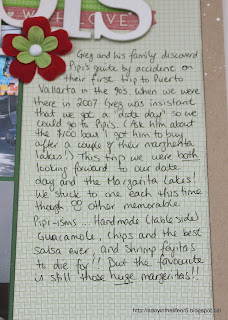 WITH LOVE
Greg and his family discovered
Pipi's quite by accident on
their first trip to Puerto
Vallarta in the 90s. When we were
there in 2007 Greg was insistant
that we got a 'date day' so we
could go to Pipi's. (Ask him about
the $100 bowl I got him to buy
after a couple of their margherita
lakes!) This trip we were both
looking forward to our date
day and the Margarita Lakes!
We stuck to one each this time
though ☺ Other memorable
Pipi-isms.... Handmade (table side)
Guacamole, Chips and the best
salsa ever, and shrimp fajitas
to die for!! But the favourite
is still those huge margeritas!!
http://adayinthelifeor5.blogspot.ca/